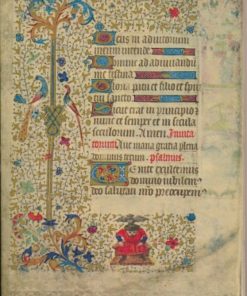 Deus in adiutorium
meum intende
Domine ad adiuvandū
me festina
Gloria patri et filio et spi
ritui sancto
Sicut erat in principio
nunc et semper et in secula
seculorum Amen Invita
torium Ave maria gratia plena
dominus tecum psalmus
Venite exultemus
domino iubilem
deo salutari nr̄o preocupem